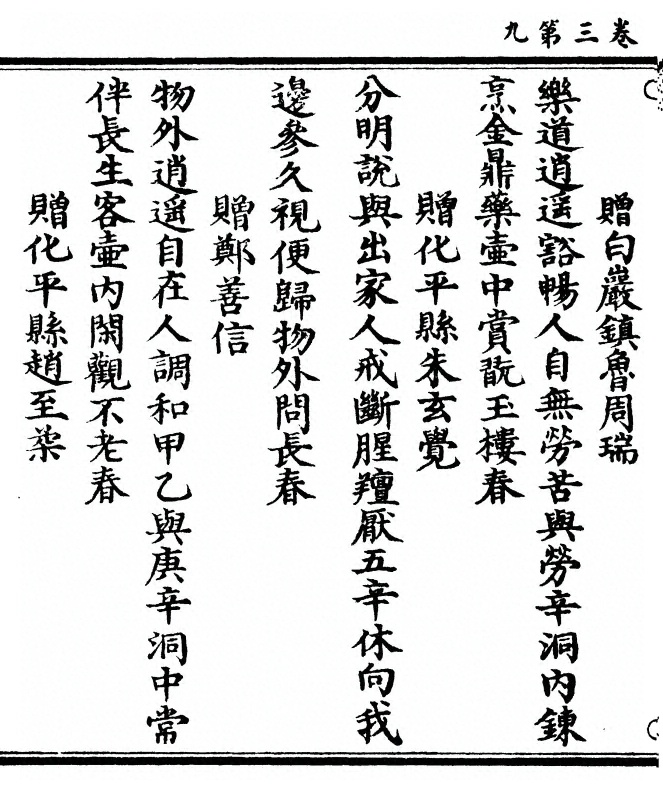 卷三第九
贈白巖鎮魯周瑞
樂道逍遥豁暢人自無勞苦與勞辛洞內鍊
烹金鼎藥壷中賞翫玉樓春
贈化平縣朱玄覺
分明說與出家人戒斷腥羶厭五辛休向我
邊參久視便歸物外問長春
贈鄭善信
物外逍遥自在人調和甲乙與庚辛洞中常
伴長生客壷內閑觀不老春
贈化平縣趙至柒